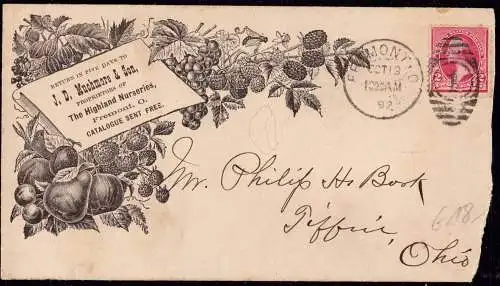 RETURN IN FIVE DAYS TO
J. D. Mushmore & Son,
PROPRIETORS OF
The Highland Nurseries,
Fremont, O.
CATALOGUE SENT FREE.
FREMONT, O.
OCT 19
AM
92
2 2
Mr. Philip H. Bork
Tiffin,
Ohio